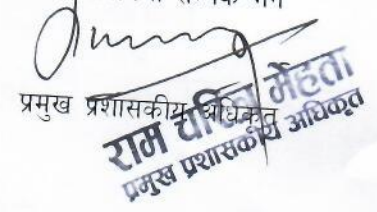 प्रमुख प्रशासकीय अधिकृत
राम चरित्र मेहता
प्रमुख प्रशासकीय अधिकृत